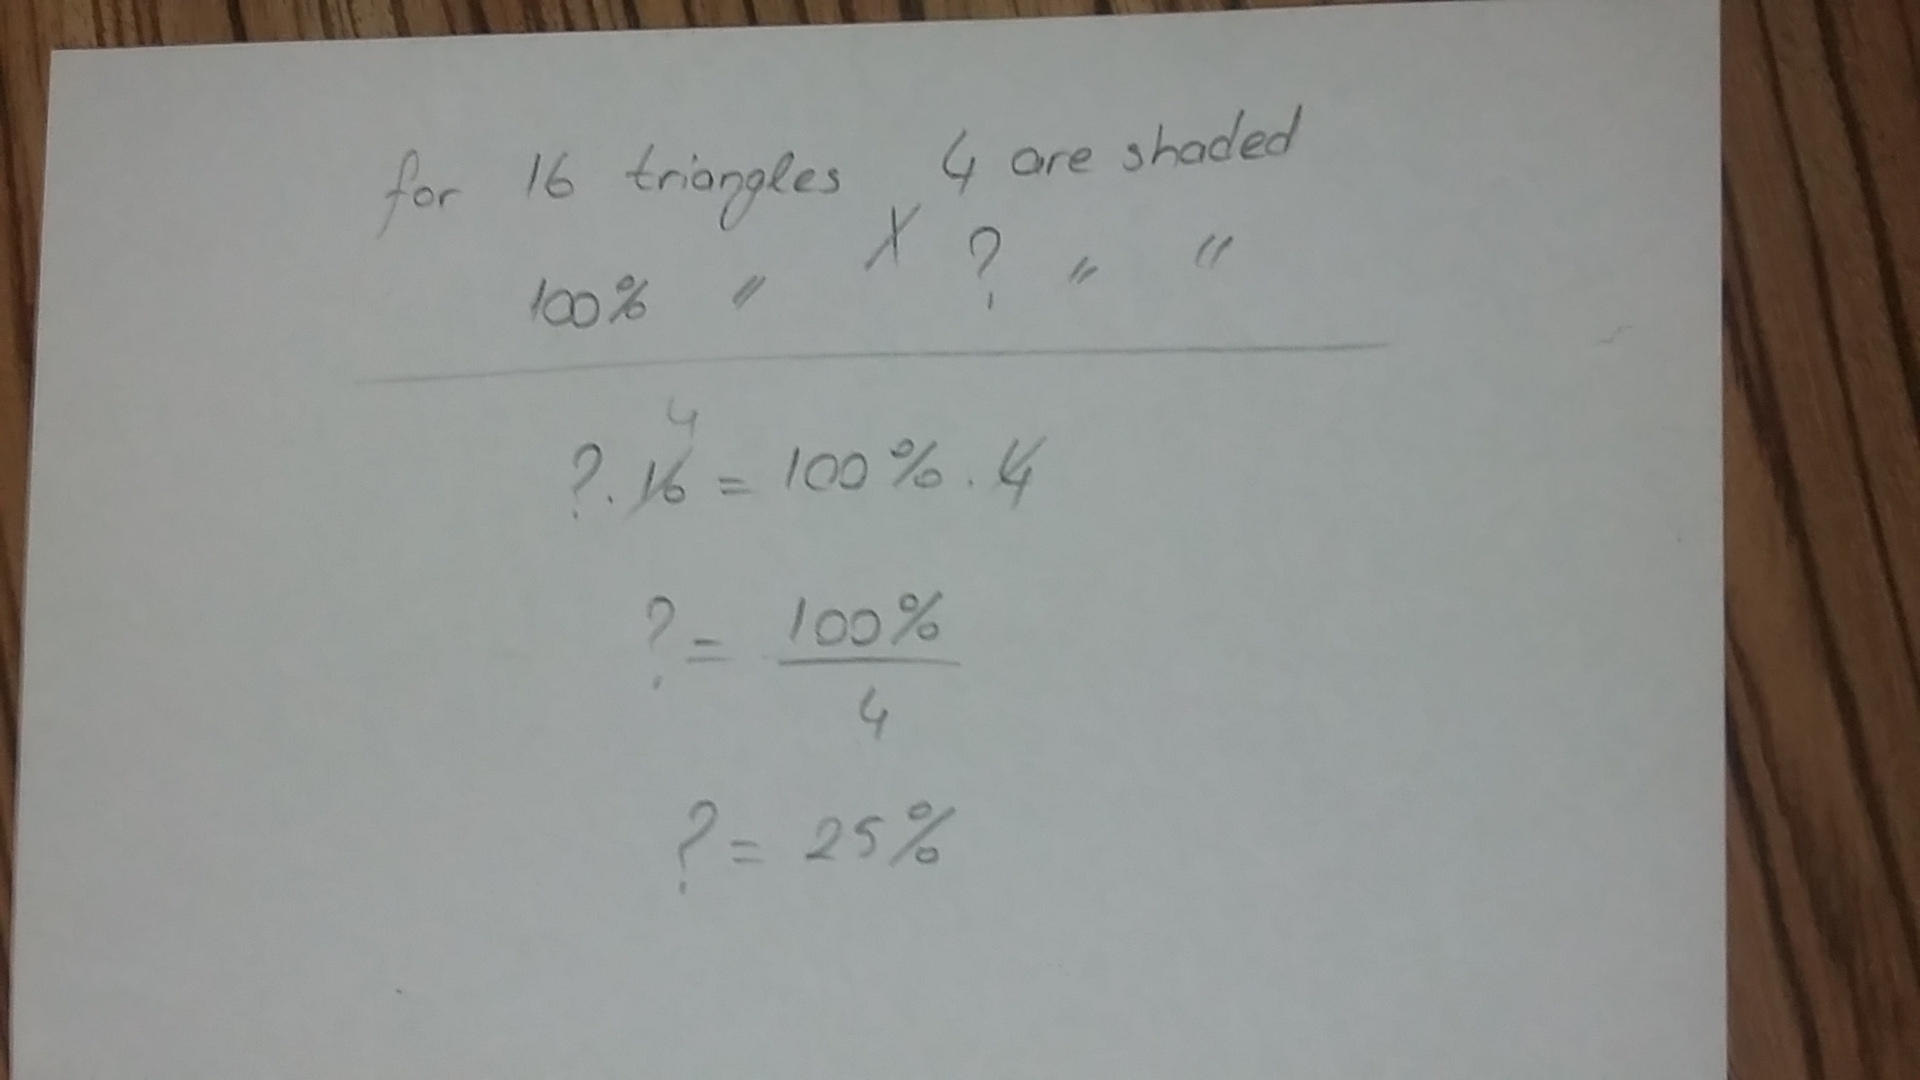 for 16 triangles 4 are shaded
100% " X ? " "
4
?. 16 = 100%. 4
? = 100%
4
? = 25%